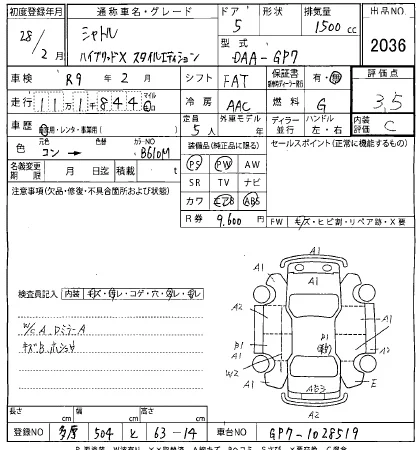 初度登録年月 通称車名・グレード ドア 形状 排気量 出品NO
28/2月 シャトル 5 1500cc 2036
ハイブリッドX スタイルエディション 型式 DAA-GP7
車検 R9年2月 シフト FAT 保証書 有・無 評価点
走行 冷房 AAC 燃料 G 3,5
車歴 自家用・レンタ・事業用( ) 定員 5人 外車モデル 年 ディーラー 並行 ハンドル 左・右 内装評価 C
色 元色 コン → 色替 カラーNO B610M 装備品(純正品に限る) セールスポイント(正常に機能するもの)
名義変更期限 月 日迄 積載 t PS PW AW
注意事項(欠品・修復・不具合箇所および状態) SR TV ナビ
カワ エアB ABS
R券 9,600円 FW キズ・ヒビ割・リペア跡・X要
A1
A1 A1
検査員記入 内装 キズ・汚レ・コゲ・穴・切レ・
A2 A1
W/C A DミラーA B1 B1 A1
キズB A1 A2
W2
A1 E
AB3
長さ cm 幅 cm 高さ cm A2
登録NO 多摩 504 と 63-14 車台NO GP7-1028519